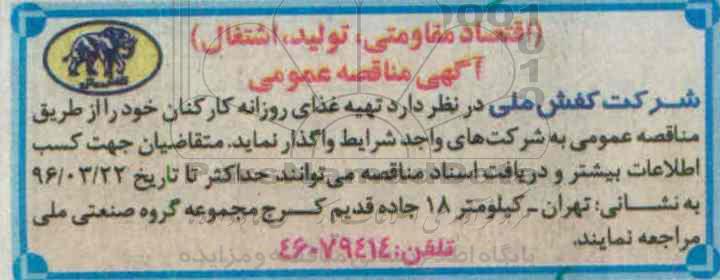 (اقتصاد مقاومتی، تولید، اشتغال)
آگهی مناقصه عمومی
شرکت کفش ملی در نظر دارد تهیه غذای روزانه کارکنان خود را از طریق
مناقصه عمومی به شرکت‌های واجد شرایط واگذار نماید. متقاضیان جهت کسب
اطلاعات بیشتر و دریافت اسناد مناقصه می‌توانند حداکثر تا تاریخ ۹۶/۰۳/۲۲
به نشانی: تهران - کیلومتر ۱۸ جاده قدیم کرج مجموعه گروه صنعتی ملی
مراجعه نمایند.
تلفن: ۴۶۰۷۹۴۱۴